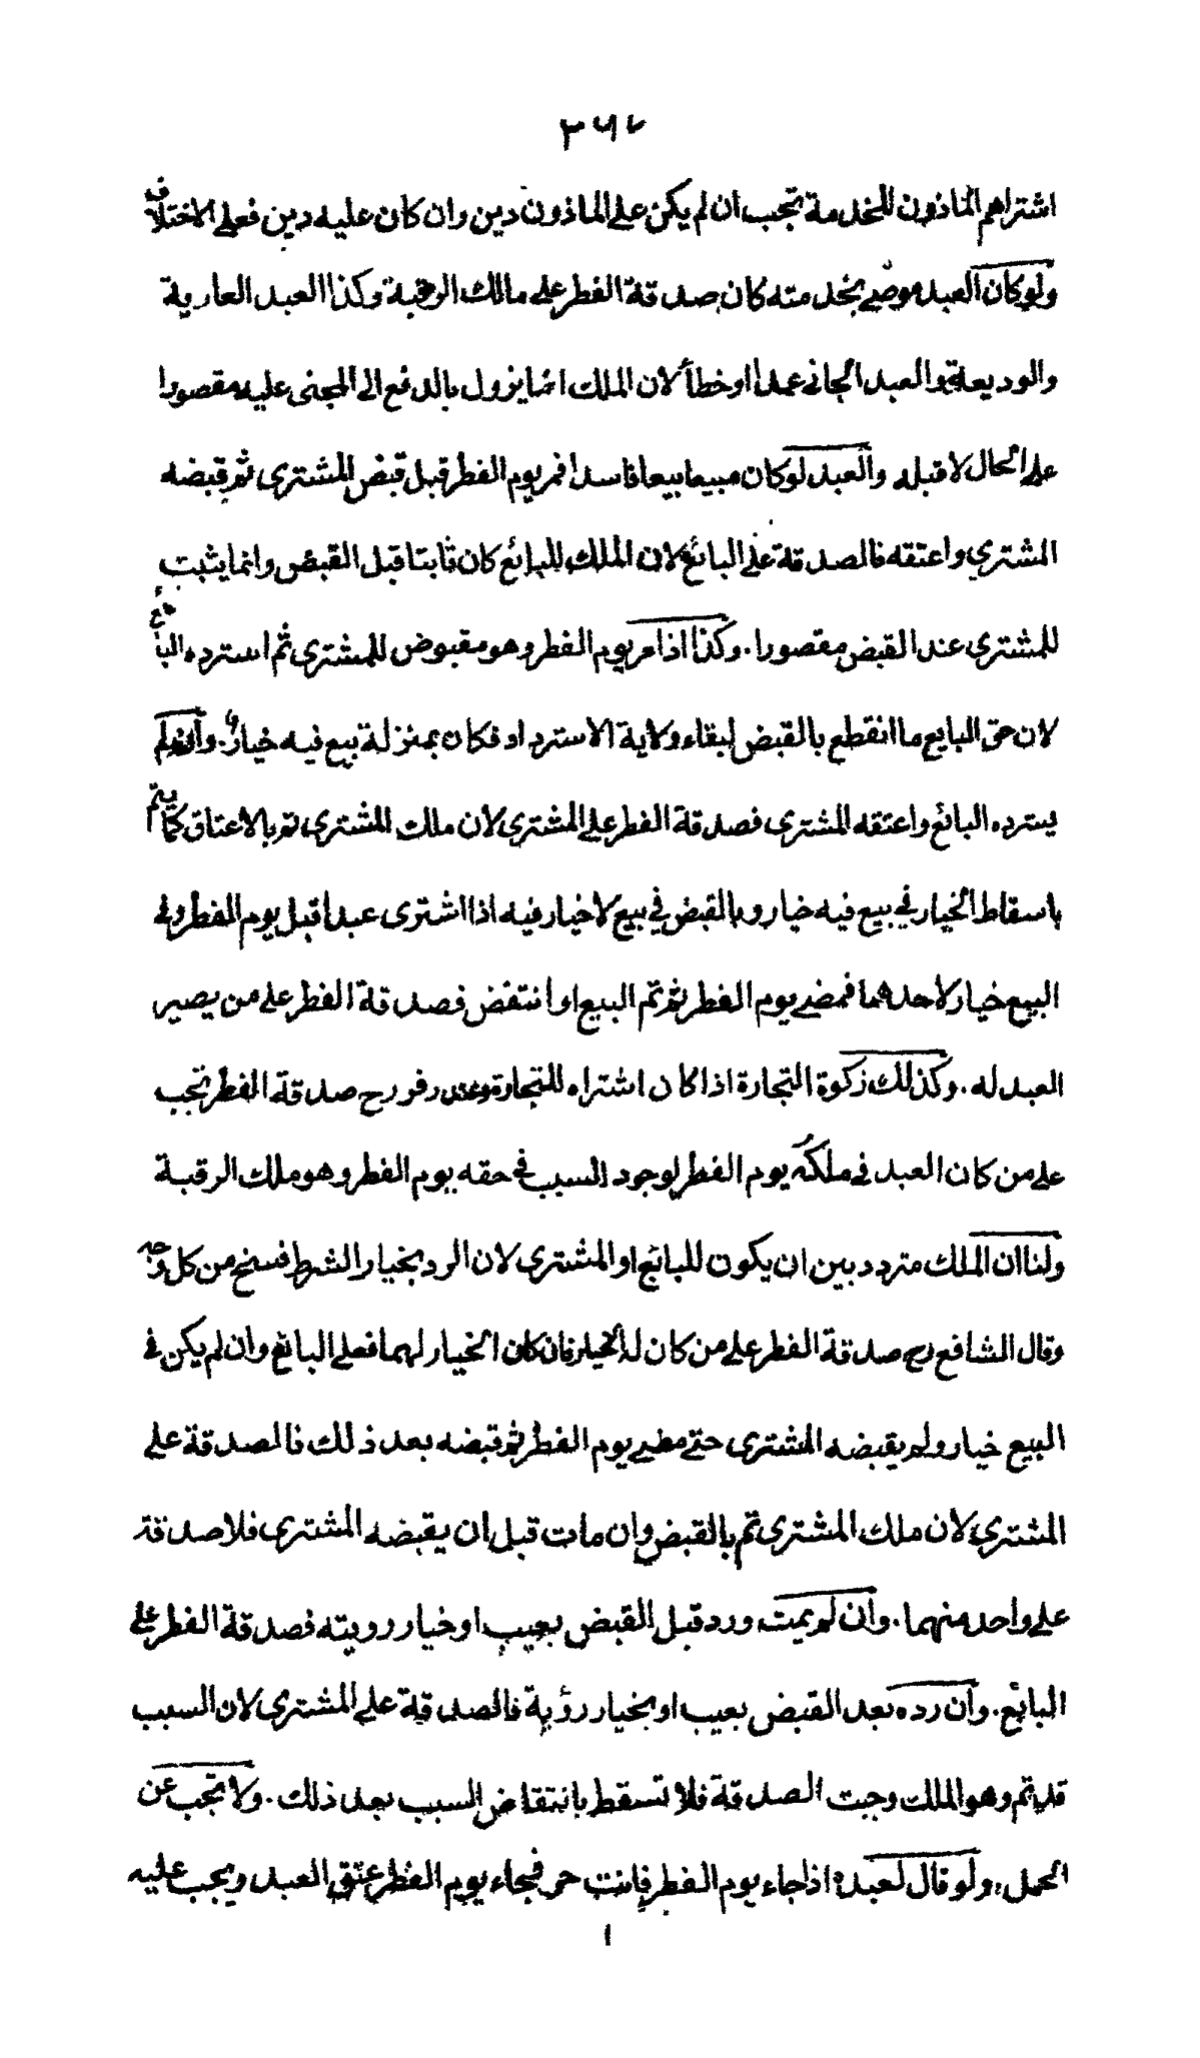 ٣٦٧
اشتراهم الماذون للخدمة تجب ان لم يكن على الماذون دين وان كان عليه دين فعلى الاختلاف
ولو كان العبد موصى بخدمته كان صدقة الفطر على مالك الرقبة وكذا العبد العارية
والوديعة والعبد الجاني عمدا او خطأ لان الملك انما يزول بالدفع الى المجنى عليه مقصورا
على الحال لا قبله والعبد لو كان مبيعا بيعا فاسدا فمر يوم الفطر قبل قبض المشترى ثم قبضه
المشترى واعتقه فالصدقة على البائع لان الملك للبائع كان ثابتا قبل القبض وانما يثبت
للمشترى عند القبض مقصورا. وكذا اذا مر يوم الفطر وهو مقبوض للمشترى ثم استرده البائع
لان حق البايع ما انقطع بالقبض لبقاء ولاية الاسترداد فكان بمنزلة بيع فيه خيار. وان لم
يسترده البائع واعتقه المشترى فصدقة الفطر على المشترى لان ملك المشترى تم بالاعتاق كما يتم
باسقاط الخيار في بيع فيه خيار وبالقبض في بيع لا خيار فيه اذا اشترى عبدا قبل يوم الفطر وفى
البيع خيار لاحدهما فمضى يوم الفطر ثم تم البيع او انتقض فصدقة الفطر على من يصير
العبد له. وكذلك زكوة التجارة اذا كان اشتراه للتجارة وعند زفر رح صدقة الفطر تجب
على من كان العبد فى ملكه يوم الفطر لوجود السبب فى حقه يوم الفطر وهو ملك الرقبة
ولنا ان الملك متردد بين ان يكون للبائع او المشترى لان الرد بخيار الشرط فسخ من كل وجه
وقال الشافعى رح صدقة الفطر على من كان له الخيار فان كان الخيار لهما فعلى البائع وان لم يكن فى
البيع خيار ولم يقبضه المشترى حتى مضى يوم الفطر ثم قبضه بعد ذلك فالصدقة على
المشترى لان ملك المشترى تم بالقبض وان مات قبل ان يقبضه المشترى فلا صدقة
على واحد منهما. وان لم يمت ورد قبل القبض بعيب او خيار رويته فصدقة الفطر على
البائع. وان رده بعد القبض بعيب او بخيار رؤية فالصدقة على المشترى لان السبب
قد تم وهو الملك وجبت الصدقة فلا تسقط بانتقاض السبب بعد ذلك. ولا تجب عن
الحمل، ولو قال لعبده اذا جاء يوم الفطر فانت حر فجاء يوم الفطر عتق العبد ويجب عليه
ا